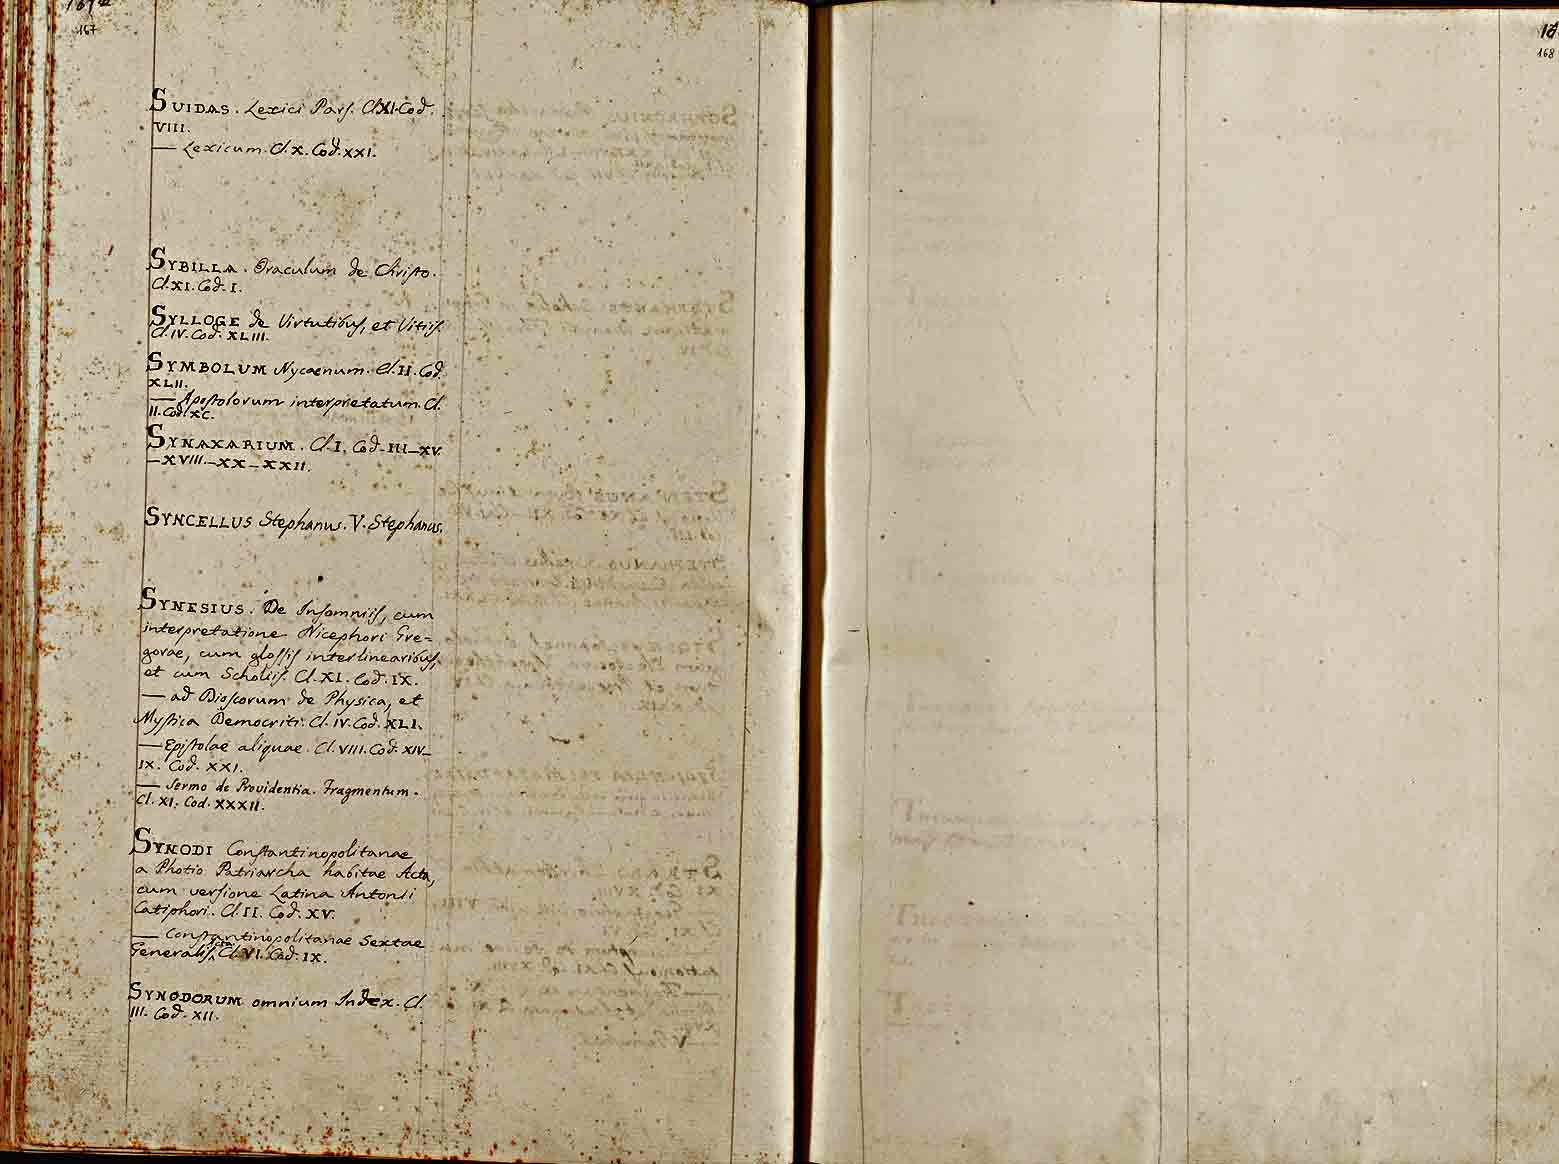 167
SUIDAS. Lexici Pars. Cl. XI. Cod.
VIII.
— Lexicum. Cl. X. Cod. XXI.
SYBILLA. Oraculum de Christo.
Cl. XI. Cod. I.
SYLLOGE de Virtutibus, et Vitiis.
Cl. IV. Cod. XLIII.
SYMBOLUM Nycaenum. Cl. II. Cod.
XLII.
— Apostolorum interpretatum. Cl.
II. Cod. XC.
SYNAXARIUM. Cl. I. Cod. III—XV
—XVIII—XX—XXII.
SYNCELLUS Stephanus. V. Stephanus.
SYNESIUS. De Insomniis, cum
interpretatione Nicephori Gre=
gorae, cum glossis interlinearibus,
et cum Scholiis. Cl. XI. Cod. IX.
— ad Dioscorum de Physica, et
Mystica Democriti. Cl. IV. Cod. XLI.
— Epistolae aliquae. Cl. VIII. Cod. XIV—
IX. Cod. XXI.
— Sermo de Providentia. Fragmentum.
Cl. XI. Cod. XXXII.
SYNODI Constantinopolitanae
a Photio Patriarcha habitae Acta,
cum versione Latina Antonii
Catiphori. Cl. II. Cod. XV.
— Constantinopolitanae Sextae
Generalis Acta Cl. VI. Cod. IX.
SYNODORUM omnium Index. Cl.
III. Cod. XII.
168